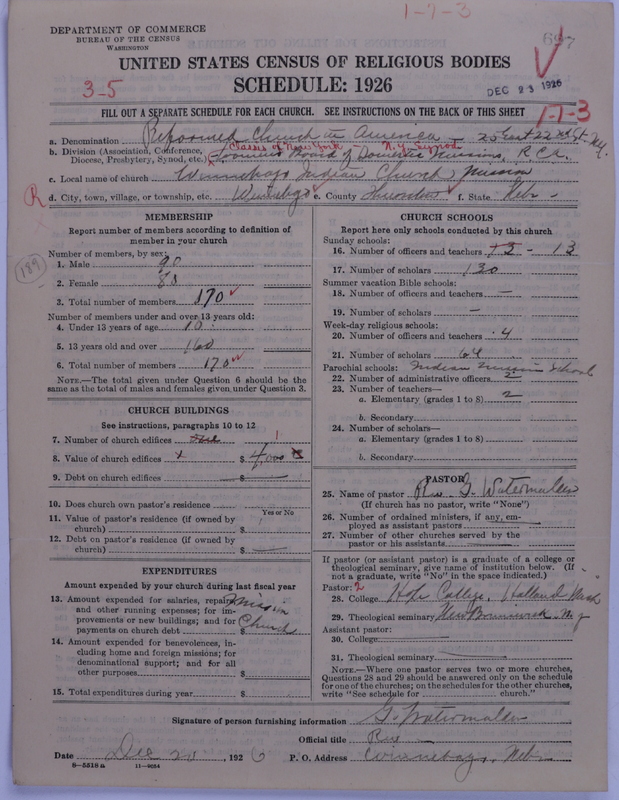 1-7-3
DEPARTMENT OF COMMERCE
BUREAU OF THE CENSUS
WASHINGTON
697
UNITED STATES CENSUS OF RELIGIOUS BODIES
SCHEDULE: 1926
3-5
DEC 23 1926
FILL OUT A SEPARATE SCHEDULE FOR EACH CHURCH. SEE INSTRUCTIONS ON THE BACK OF THIS SHEET
1-7-3
a. Denomination Reformed Church in America - 25 East 22nd St. N.Y.
Classis of New York - N.Y. Synod
b. Division (Association, Conference, Diocese, Presbytery, Synod, etc.) Women's Board of Domestic Missions, R.C.A.
c. Local name of church Winnebago Indian Church Mission
R d. City, town, village, or township, etc. Winnebago e. County Thurston f. State Nebr
MEMBERSHIP
Report number of members according to definition of
member in your church
Number of members, by sex:
189
1. Male 90
2. Female 80
3. Total number of members 170
Number of members under and over 13 years old:
4. Under 13 years of age 10
5. 13 years old and over 160
6. Total number of members 170
NOTE.—The total given under Question 6 should be the
same as the total of males and females given under Question 3.
CHURCH BUILDINGS
See instructions, paragraphs 10 to 12
7. Number of church edifices one 1
8. Value of church edifices $ 4000
9. Debt on church edifices $ —
10. Does church own pastor's residence
Yes or No
11. Value of pastor's residence (if owned by
church) $
12. Debt on pastor's residence (if owned by
church) $ —
EXPENDITURES
Amount expended by your church during last fiscal year
13. Amount expended for salaries, repairs, Mission
and other running expenses; for im-
provements or new buildings; and for Church
payments on church debt $
14. Amount expended for benevolences, in-
cluding home and foreign missions; for
denominational support; and for all
other purposes $
15. Total expenditures during year $
CHURCH SCHOOLS
Report here only schools conducted by this church
Sunday schools:
16. Number of officers and teachers 13 - 13
17. Number of scholars 130
Summer vacation Bible schools:
18. Number of officers and teachers —
19. Number of scholars —
Week-day religious schools:
20. Number of officers and teachers 4
21. Number of scholars 64
Parochial schools: Indian Mission School
22. Number of administrative officers 2
23. Number of teachers—
a. Elementary (grades 1 to 8) 2
b. Secondary
24. Number of scholars—
a. Elementary (grades 1 to 8)
b. Secondary
PASTOR
25. Name of pastor Rev G. Watermulder
(If church has no pastor, write "None")
26. Number of ordained ministers, if any, em-
ployed as assistant pastors —
27. Number of other churches served by the
pastor or his assistants —
If pastor (or assistant pastor) is a graduate of a college or
theological seminary, give name of institution below. (If
not a graduate, write "No" in the space indicated.)
Pastor: 2
28. College Hope College, Holland Mich
29. Theological seminary New Brunswick N.J.
Assistant pastor:
30. College
31. Theological seminary —
NOTE.—Where one pastor serves two or more churches,
Questions 28 and 29 should be answered only on the schedule
for one of the churches; on the schedules for the other churches,
write "See schedule for church."
Signature of person furnishing information G. Watermulder
Official title Rev
Date Dec 20, 1926 P. O. Address Winnebago, Nebr.
8-5518a 11-9054